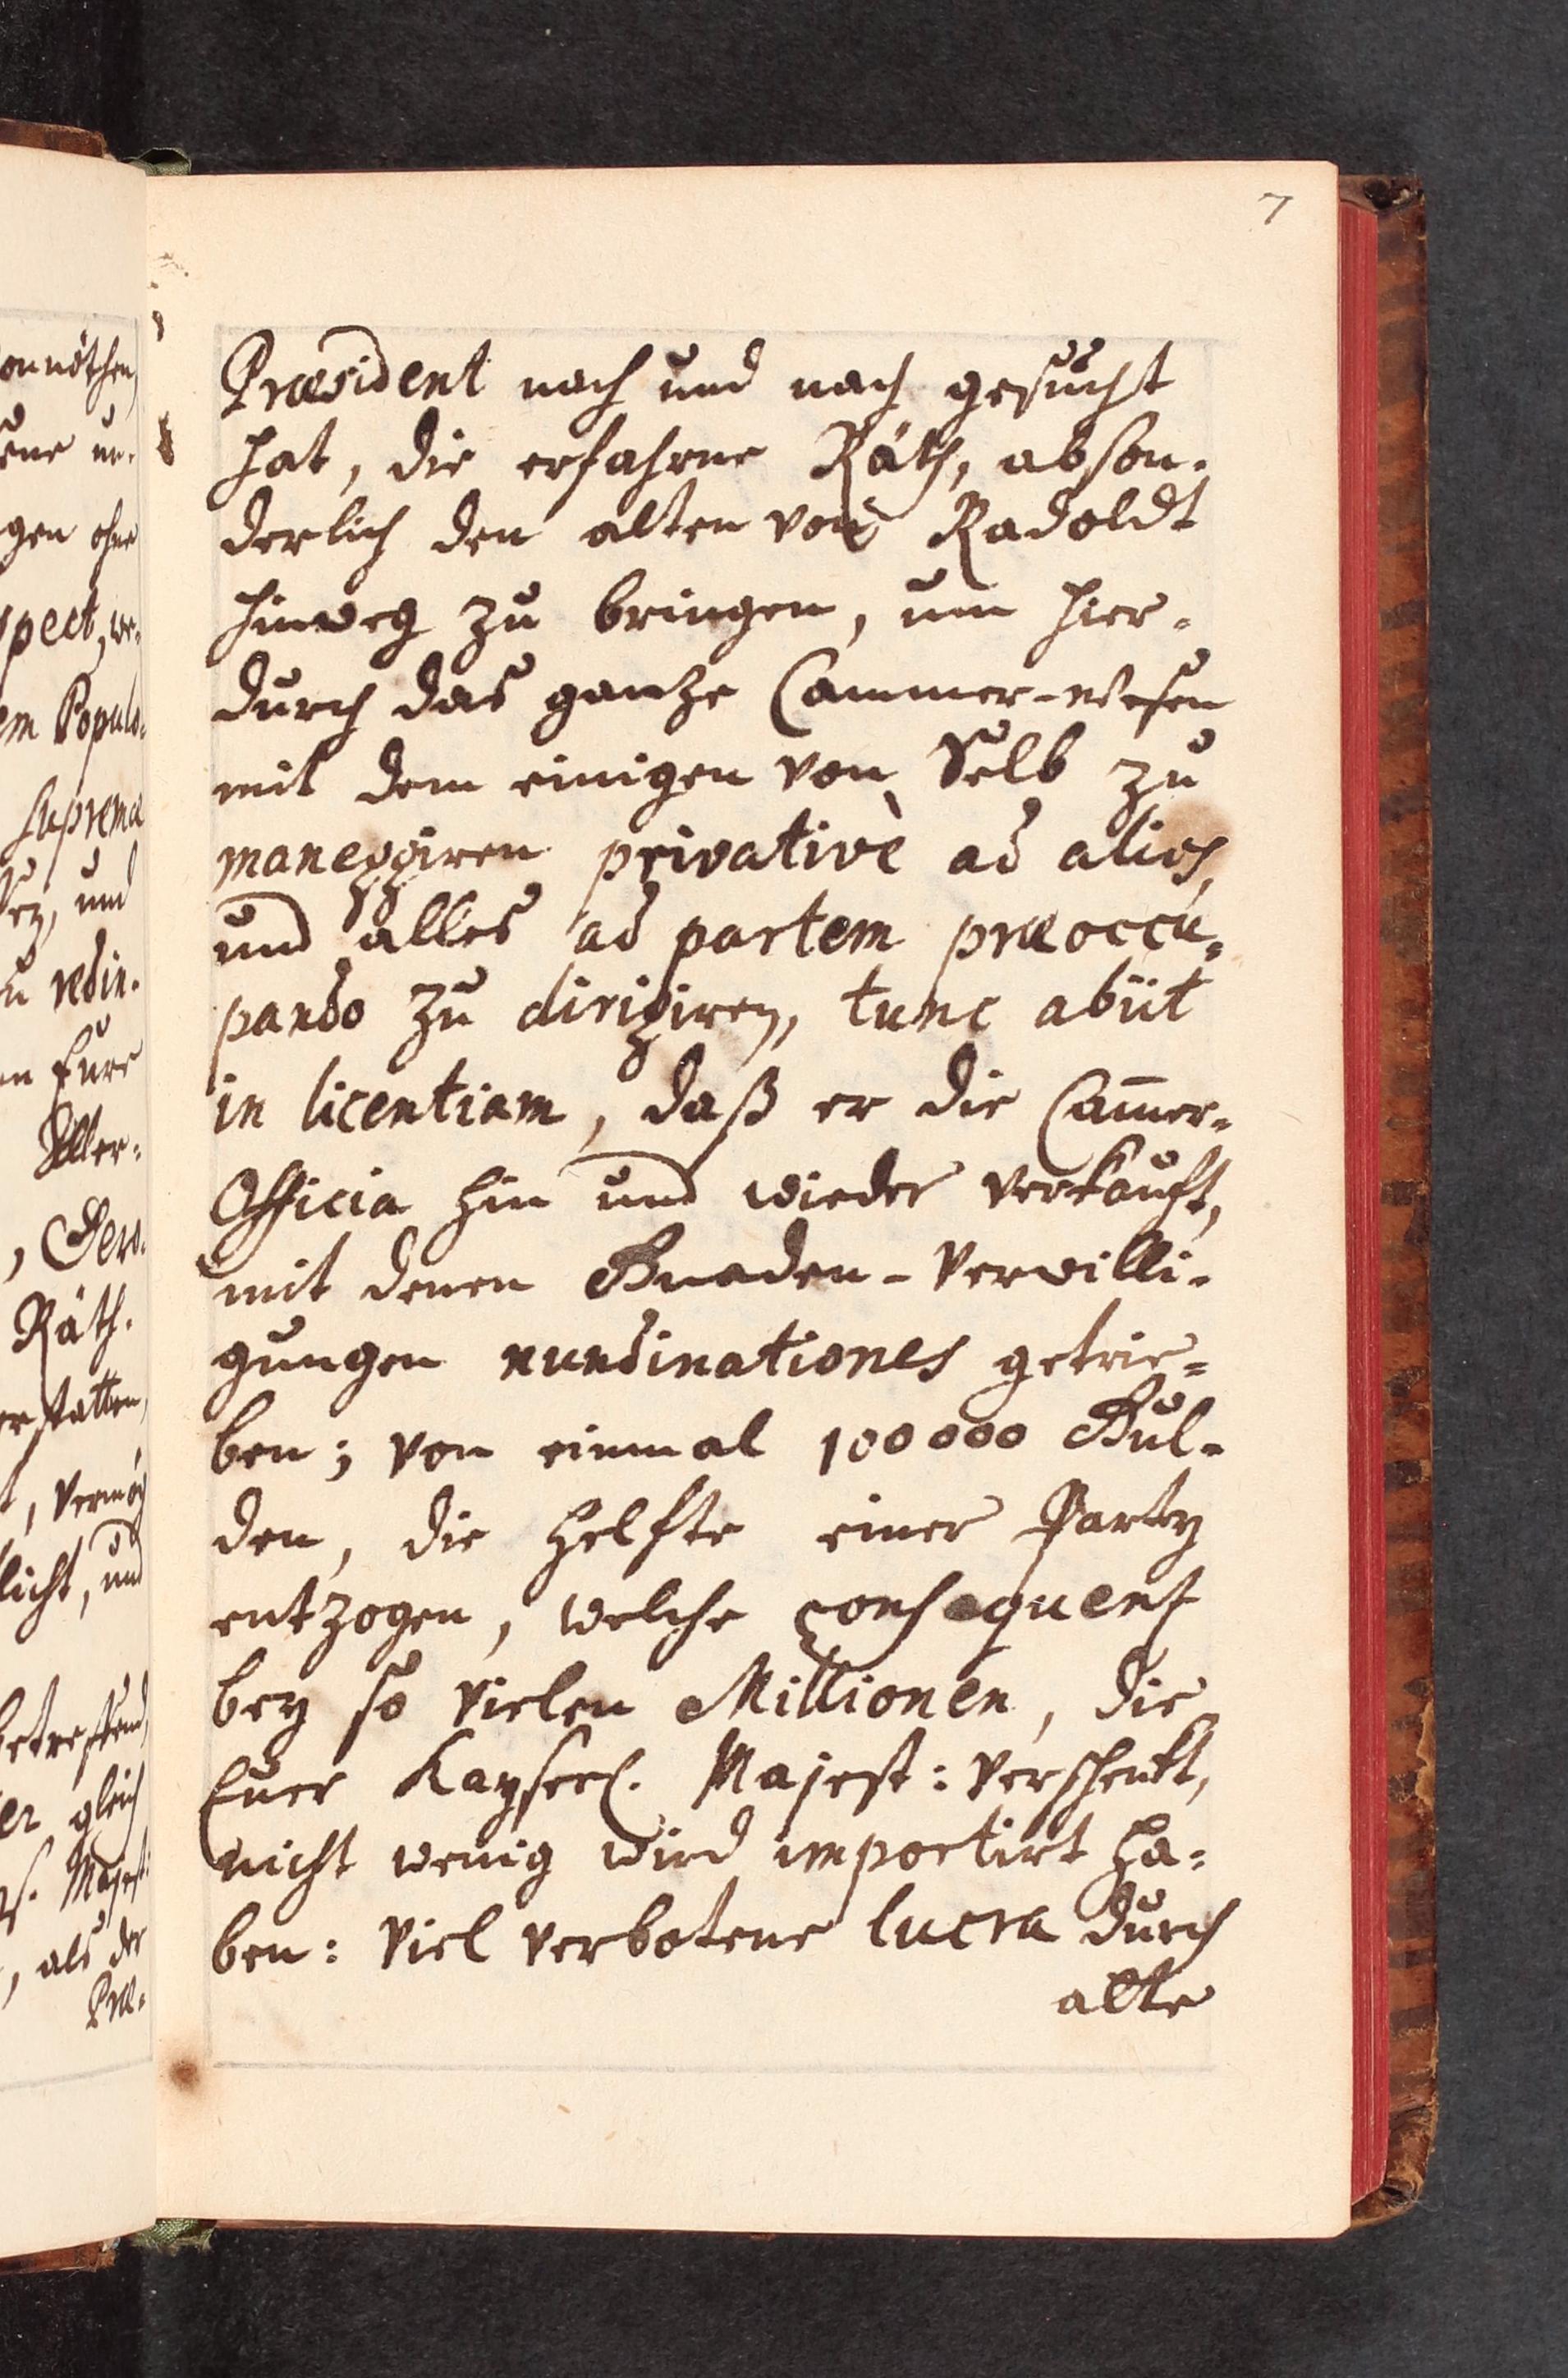 7
Præsident nach und nach gesucht
hat, die erfahrne Räth, abson-
derlich den alten von Radoldt
hinweg zu bringen, um hier-
durch das gantze Cammer-Wesen
mit dem einigen von Selb zu
maneggiren privativè ad alios,
und alles ad partem præoccu-
pando zu dirigiren, tunc abiit
in licentiam, daß er die Cam̄er-
Officia hin und wieder verkauft,
mit denen Gnaden-Verwilli-
gungen nundinationes getrie-
ben; von einmal 100000 Gul-
den, die Helfte einer Party
entzogen, welche consequent
bey so vielen Millionen, die
Euer Kayserl. Majest: verschenkt,
nicht wenig wird importirt ha-
ben: Viel verbotene lucra durch
alte
onnöthen,
gen ohne
spect, we-
em Populo-
supremæ
sey, und
n Eure
Aller-
Räth.
erstatten,
licht, und
er gleich
Majest:
, als der
Præ-